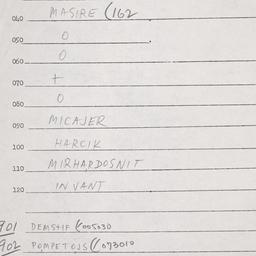 040 MASIRE (162
050 0
060 0
070 +
080 0
090 MICAJER
100 HARCIK
110 MIRHARDOSNIT
120 INVANT
901 DEMSTIF (005030
902 POMPETOJS (073010